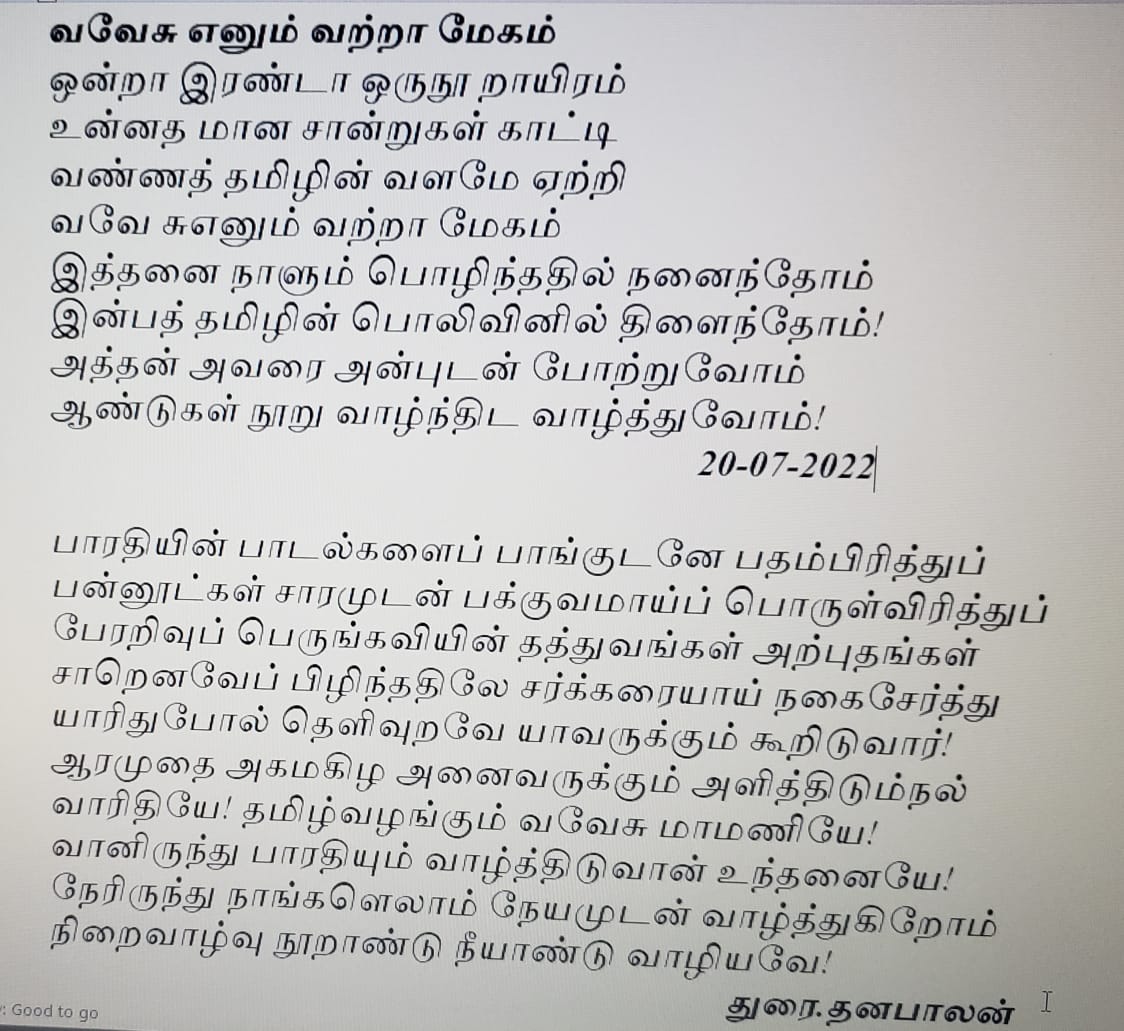 வவேசு எனும் வற்றா மேகம்
ஒன்றா இரண்டா ஒருநூ றாயிரம்
உன்னத மான சான்றுகள் காட்டி
வண்ணத் தமிழின் வளமே ஏற்றி
வவே சுஎனும் வற்றா மேகம்
இத்தனை நாளும் பொழிந்ததில் நனைந்தோம்
இன்பத் தமிழின் பொலிவினில் திளைந்தோம்!
அத்தன் அவரை அன்புடன் போற்றுவோம்
ஆண்டுகள் நூறு வாழ்ந்திட வாழ்த்துவோம்!
20-07-2022
பாரதியின் பாடல்களைப் பாங்குடனே பதம்பிரித்துப்
பன்னூட்கள் சாரமுடன் பக்குவமாய்ப் பொருள்விரித்துப்
பேரறிவுப் பெருங்கவியின் தத்துவங்கள் அற்புதங்கள்
சாறெனவேப் பிழிந்ததிலே சர்க்கரையாய் நகைசேர்த்து
யாரிதுபோல் தெளிவுறவே யாவருக்கும் கூறிடுவார்!
ஆரமுதை அகமகிழ அனைவருக்கும் அளித்திடும்நல்
வாரிதியே! தமிழ்வழங்கும் வவேசு மாமணியே!
வானிருந்து பாரதியும் வாழ்த்திடுவான் உந்தனையே!
நேரிருந்து நாங்களெலாம் நேயமுடன் வாழ்த்துகிறோம்
நிறைவாழ்வு நூறாண்டு நீயாண்டு வாழியவே!
துரை.தனபாலன்
: Good to go